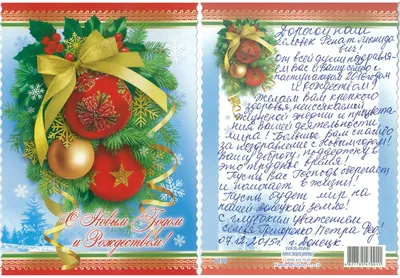 С Новым Годом
и Рождеством!
Дорогой наш
человек Ренат Леонидо
вич!
от всей души поздравля-
ем вас и вашу семью с
наступающим 2016 годом
и рождеством!
Желаем вам крепкого
здоровья, неиссякаемой
жизненой энергии и процвета-
ния вашей деятельности
мира! Большое вам спасибо
за неравнодушие
вашу доброту, поддержку в
это трудное время!
Пусть вас Господь оберегает
и помогает в жизни!
Пусть будет мир на
нашей донецкой земле!
С глубоким уважением
семья Гончаренко Петра
07.12.2015г г. Донецк.